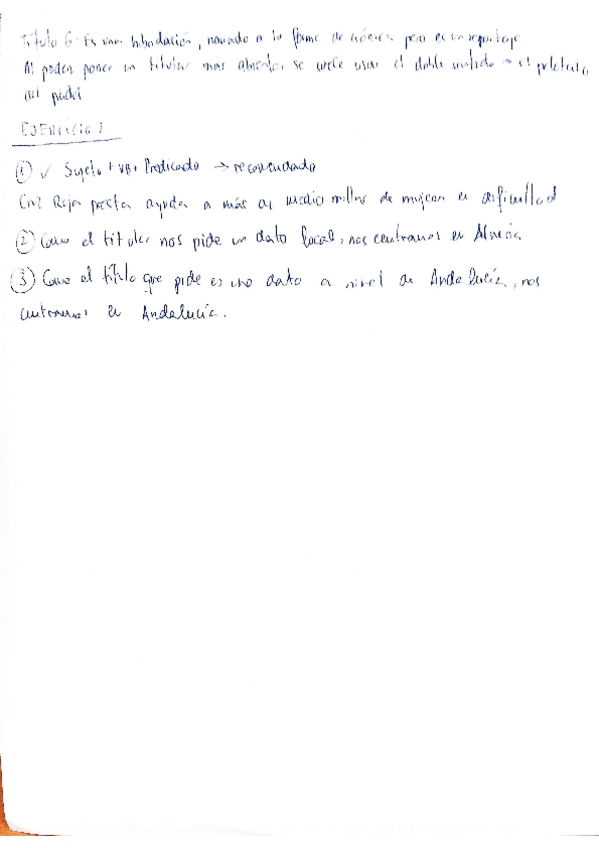 Título 6 - Es una hibridación, narrado a la forma de crónica pero es un reportaje
Al poder poner un titular mas abierto, se suele usar el doble sentido → el
del
EJERCICIO 1
① ✓ Sujeto + VB + Predicado → recomendado
Cruz Roja presta ayuda a más de medio millón de mujeres en dificultad
② Como el titular nos pide un dato local, nos centramos en Almería
③ Como el título que pide es un dato a nivel de Andalucía, nos
centramos en Andalucía.